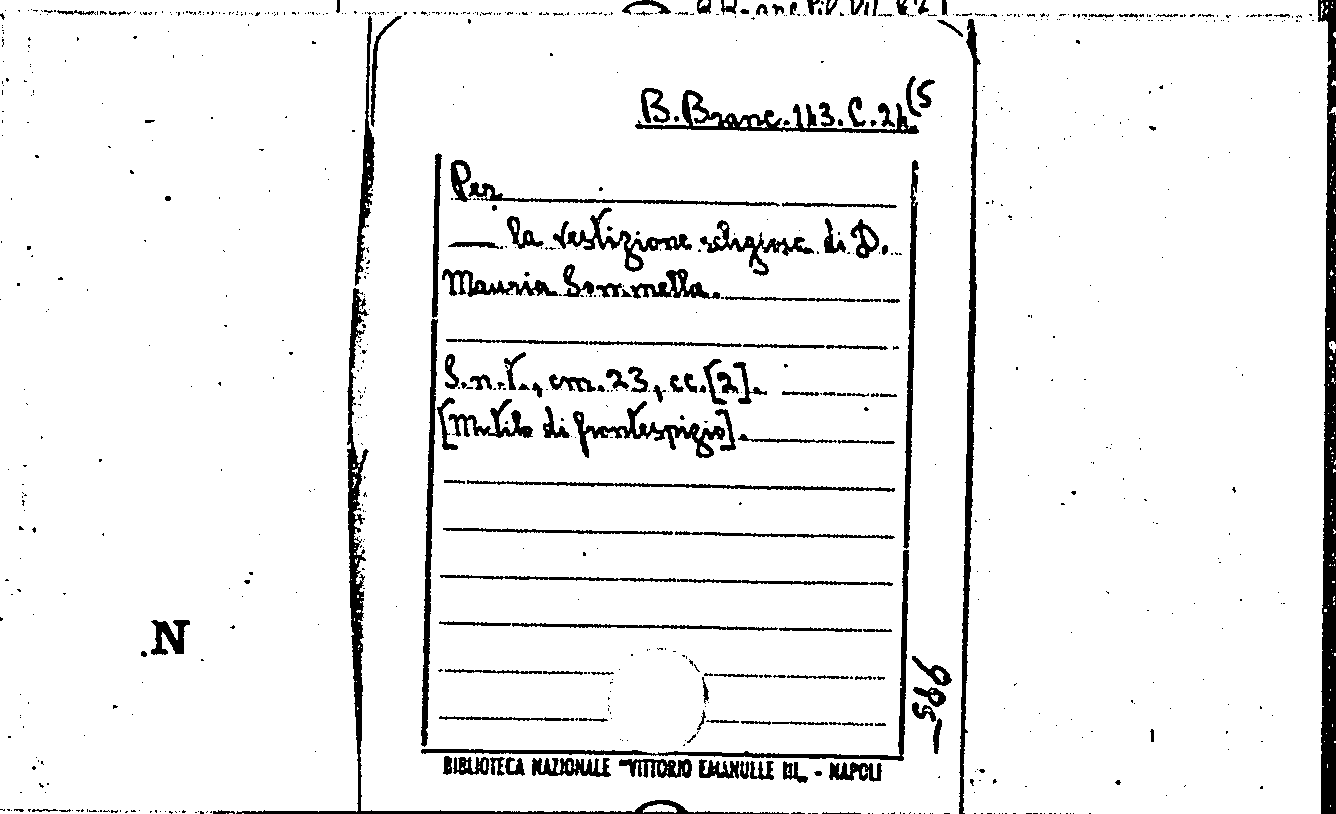 B. Branc. 143. C. 24 (5
Per
— la vestizione religiosa di D.
Mauria Sommella.
S.n.t., cm. 23, cc. [2].
[Mutilo di frontespizio].
.N
BIBLIOTECA NAZIONALE "VITTORIO EMANULLE III„ - NAPOLI